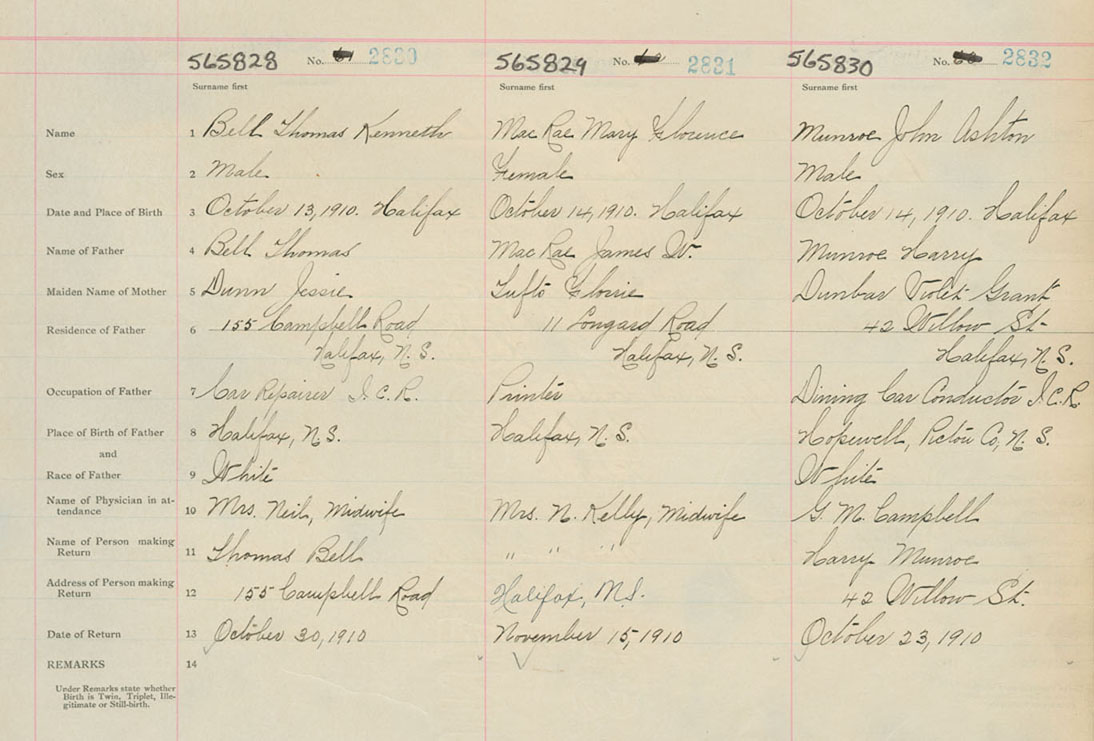 565828 No. 2830 565829 No. 2831 565830 No. 2832
Surname first Surname first Surname first
Name 1 Bell Thomas Kenneth MacRae Mary Florence Munroe John Ashton
Sex 2 Male Female Male
Date and Place of Birth 3 October 13, 1910. Halifax October 14, 1910. Halifax October 14, 1910. Halifax
Name of Father 4 Bell Thomas MacRae James W. Munroe Harry
Maiden Name of Mother 5 Dunn Jessie Tufts Dunbar Violet Grant
Residence of Father 6 155 Campbell Road 11 Longard Road 42 Willow St.
Halifax, N.S. Halifax, N.S. Halifax, N.S.
Occupation of Father 7 Car Repairer I.C.R. Printer Dining Car Conductor I.C.R.
Place of Birth of Father 8 Halifax, N.S. Halifax, N.S. Hopewell, Pictou Co, N.S.
and
Race of Father 9 White White
Name of Physician in at-
tendance 10 Mrs. Neil, Midwife Mrs. N. Kelly, Midwife G. M. Campbell
Name of Person making
Return 11 Thomas Bell " " " Harry Munroe
Address of Person making
Return 12 155 Campbell Road Halifax, N.S. 42 Willow St.
Date of Return 13 October 30, 1910 November 15, 1910 October 23, 1910
REMARKS 14
Under Remarks state whether
Birth is Twin, Triplet, Ille-
gitimate or Still-birth.